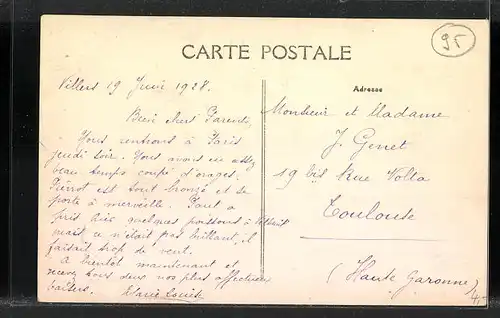 95
CARTE POSTALE
Villers 19 Juin 1928.
Bien chers Parents
Nous rentrons à Paris
jeudi soir. Nous avons eu assez
beau temps coupé d'orages.
Pierrot est tout bronzé et se
porte à merveille. Paul a
pris hier quelques poissons à
mais ce n'était pas brillant, il
faisait trop de vent.
A bientôt maintenant et
recevez tous deux nos plus affectueux
baisers. Marie Louise
Adresse
Monsieur et Madame
J. Genet
19 bis Rue Volta
Toulouse
(Haute Garonne)